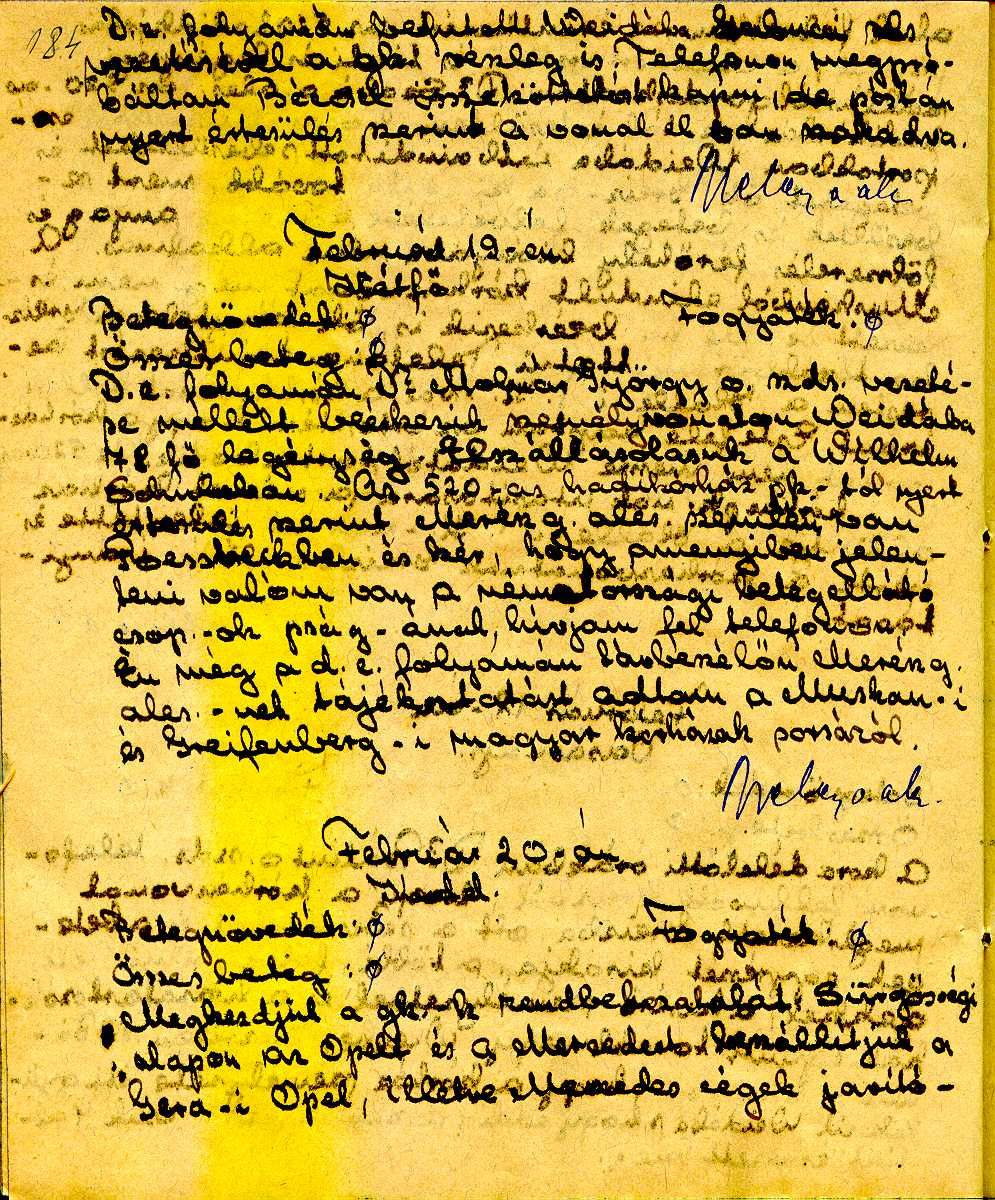 184
D.e. folyamán befutott Weidába
vezetésével a gk. részleg is. Telefonon megpró-
báltam Béccsel összeköttetést kapni, de postán
nyert értesülés szerint a vonal el van szakadva.
Február 19-én
Hétfő
Betegnövedék: ø Fogyaték: ø
Összes beteg: ø
D.e. folyamán Dr Molnár György o. zds. vezeté-
se mellett beérkezik személyvonaton Weidába
78 fő legénység. Elszállásolásuk a Wilhelm
Schuleban. Az 520-as hadikórház pk.-tól nyert
értesülés szerint Merész g. ales. szintén van
és kér, hogy amennyiben jelen-
teni valóm van a németországi betegellátó
csop.-ok pság-ánál, hívjam fel telefonon.
Én még a d.e. folyamán távbeszélőn Merész g.
ales.-nek tájékoztatást adtam a Muskau-i
és Greifenberg-i magyar kórházak sorsáról.
Február 20-án
Kedd.
Betegnövedék: ø Fogyaték: ø
Összes beteg: ø
Megkezdjük a gk.-k rendbehozatalát. Sürgősségi
alapon az Opelt és a Mercedest beszállítjuk a
Gera-i Opel, illetve Mercedes cégek javító-